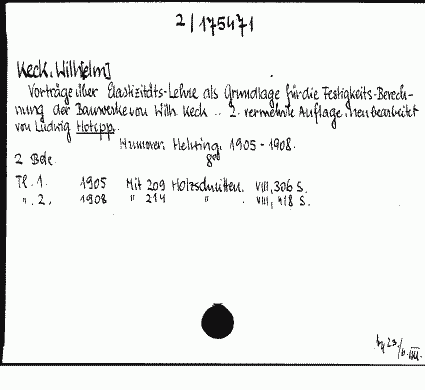 2/175471
Keck, Wilh[elm]
Vorträge über Elastizitäts-Lehre als Grundlage für die Festigkeits-Berech-
nung der Bauwerke von Wilh. Keck .. 2. vermehrte Auflage, neu bearbeitet
von Ludwig Hotopp.
Hannover, Helwing, 1905-1908.
2 Bde. 8°
Tl. 1. 1905 Mit 209 Holzschnitten. VIII, 306 S.
" 2. 1908 " 214 " VIII, 418 S.